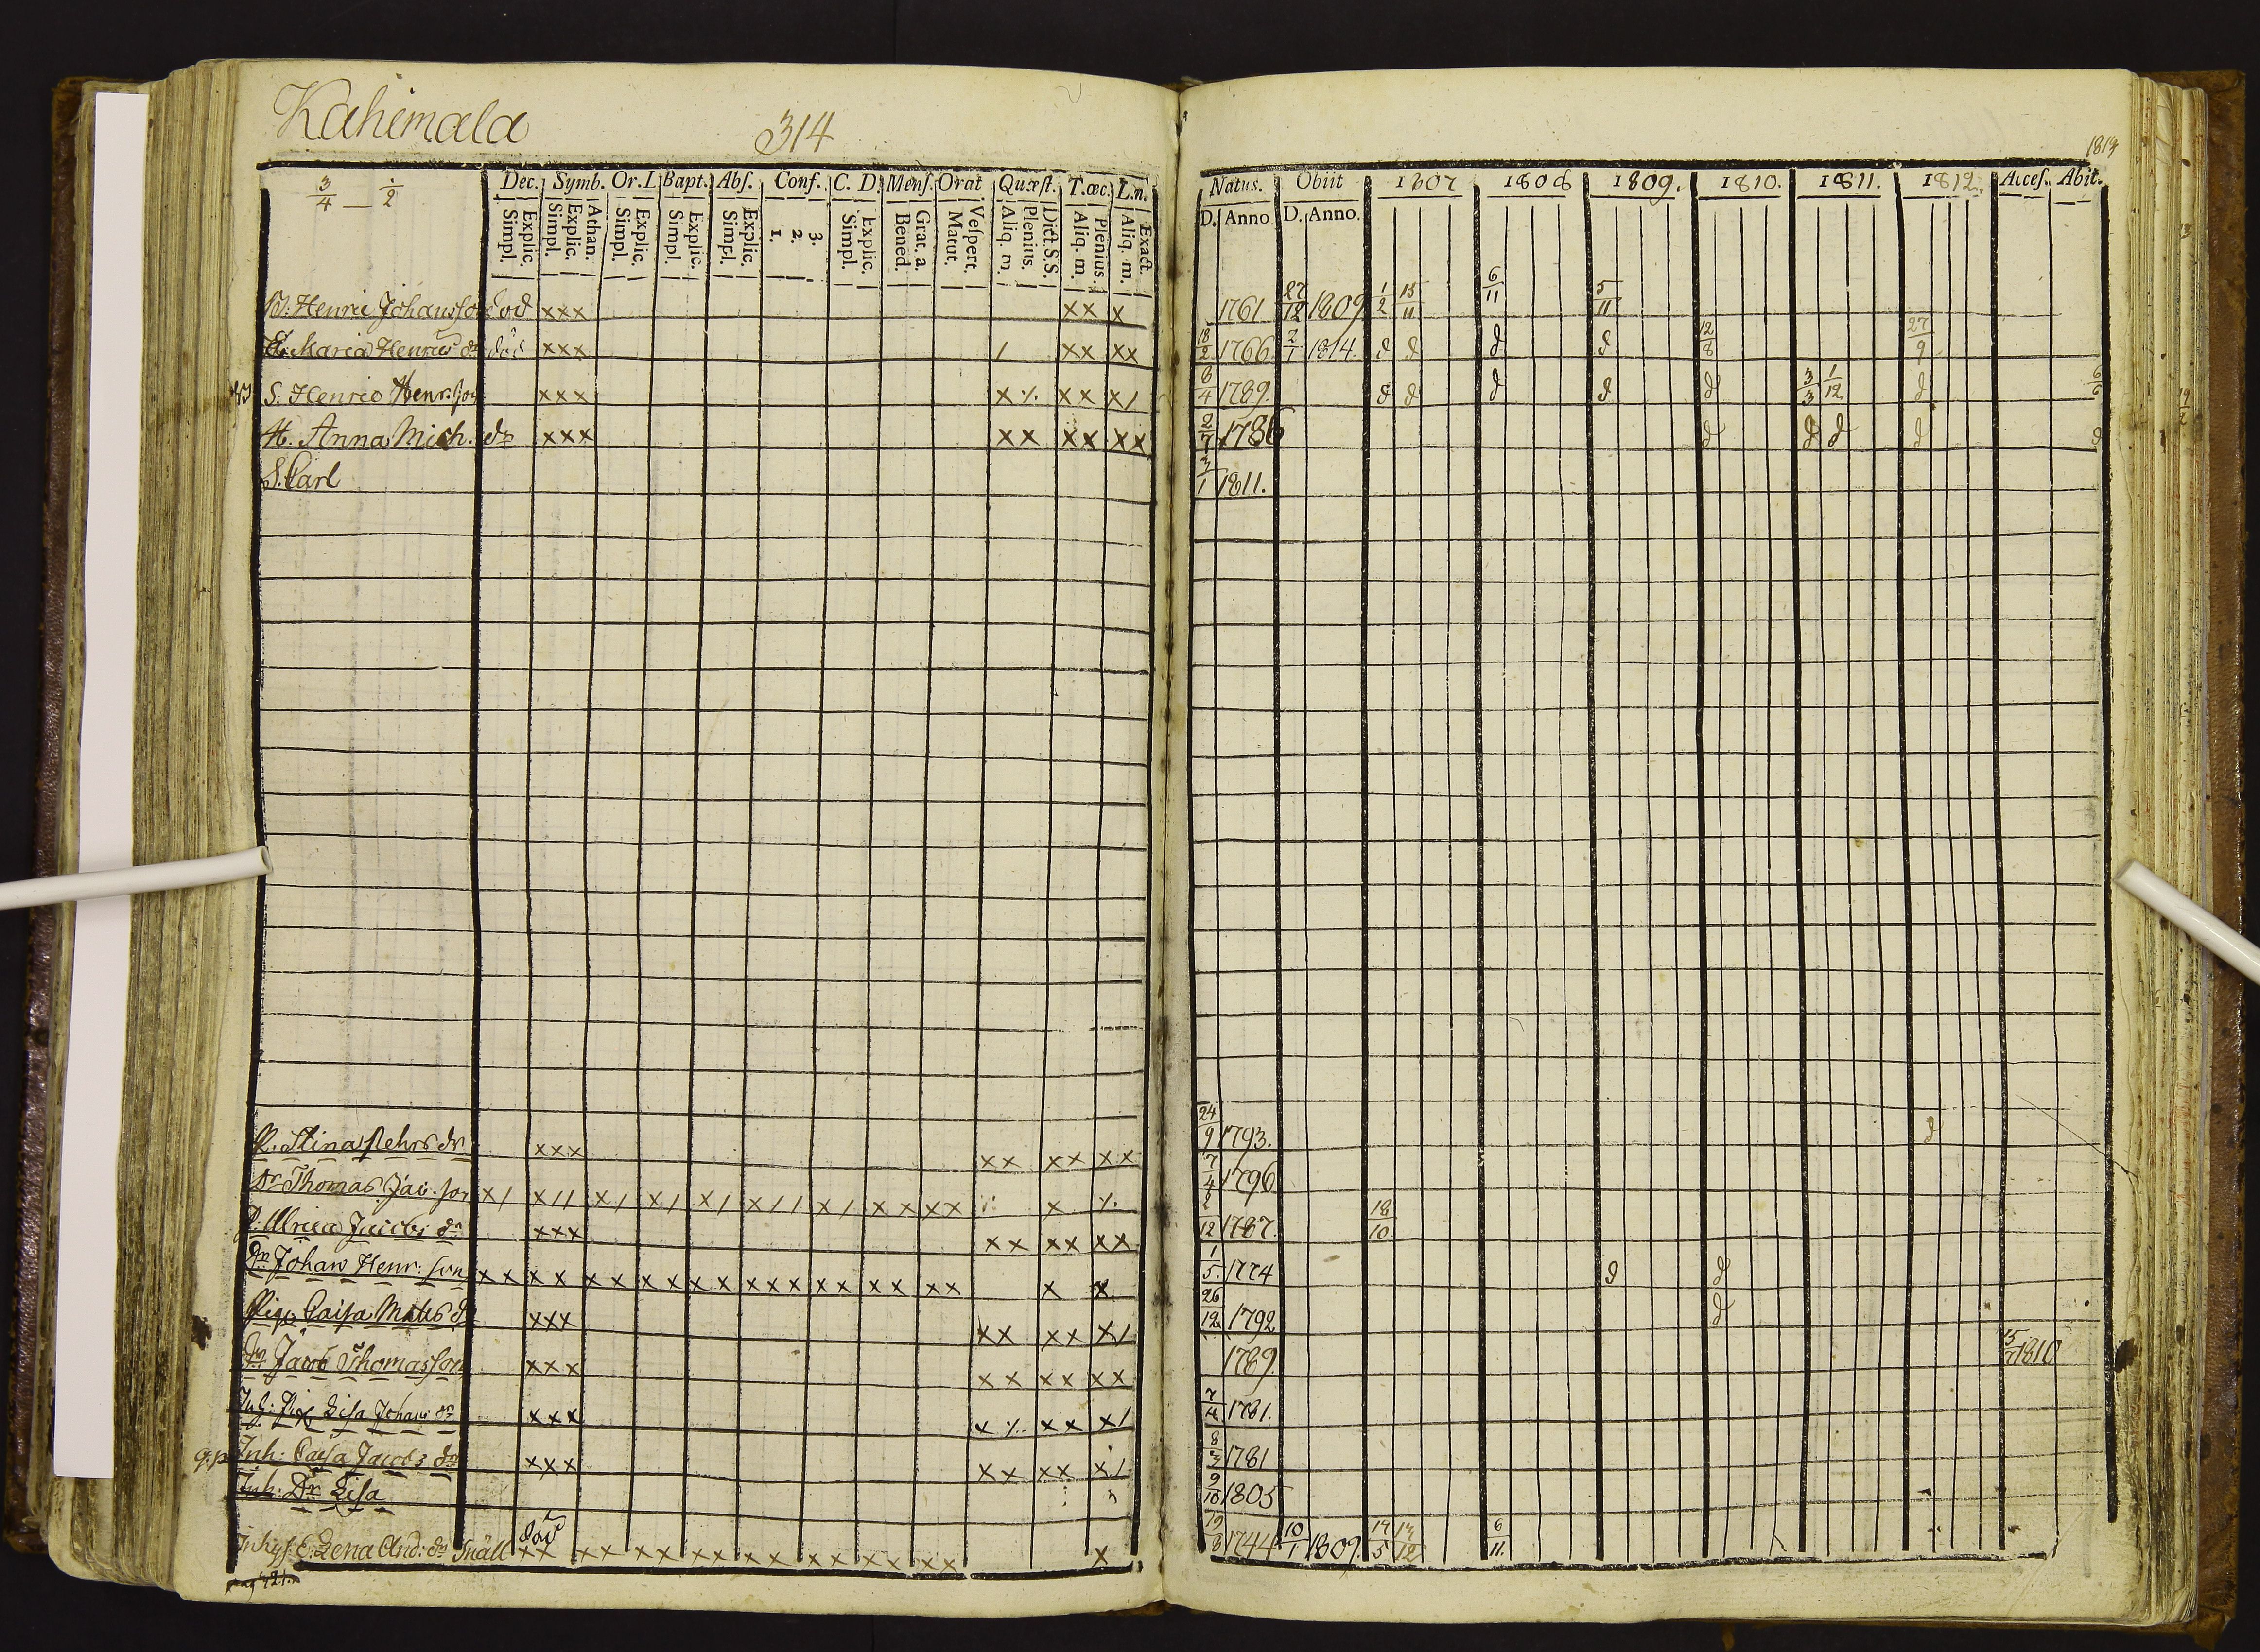 Kahimala 314
1813
3/4 — 1/2 Dec. Symb. Or. L. Bapt. Abs. Conf. C. D. Mens. Orat Quæst. T. œc. L. n.
Simpl. Explic. Simpl. Explic. Athan. Simpl. Explic. Simpl. Explic. Simpl. Explic. 1. 2. 3. Simpl. Explic. Bened. Grat. a. Matut. Vespert. Aliq. m. Plenius. Dict. S.S. Aliq. m. Plenius. Aliq. m. Exact.
Natus. Obiit 1807 1808 1809. 1810. 1811. 1812. Acces. Abit.
D. Anno. D. Anno.
Henric Johansson död xxx xx x 1761 27/12 1809 1/2 15/11 6/11 5/11
Maria Henrics dr död xxx / xx xx 18/2 1766 2/1 1814. d d d d 12/8 27/9
S. Henric Henr. son xxx x·/. xx x/ 8/4 1789. d d d d d 3/3 1/12 d 6/6
H. Anna Mich. dr xxx xx xx xx 2/7 1786 d d d d d
S. Carl 3/1 1811.
P. Stina dr xxx xx xx xx 24/9 1793. d
Dr Thomas Jac. son x/ x// x/ x/ x/ x// x/ xx xx x 7/4 1796
P. Ulrica Jacobs dr xxx xx xx xx 2/12 1787. 18/10
Dr Johan Henr. son xx xx xx xx xx xxx xx xx xx x x 1/5. 1774 d d
Pig. Caisa Matts dr xxx xx xx x/ 26/12 1792 d
Dr Jacob Thomasson xxx xx xx xx 1789. 15/7 1810
Inh: Pig Lisa Johans dr xxx x·/. xx x/ 7/4 1781.
Inh: Caisa Jacobs dr xxx xx xx x/ 8/3 1781
Inh: Dr. Lisa 9/10 1805
Inhys. E. Lena And: dr Snäll död xx xx xx xx xx xx xx xx x 19/8 1744 10/1 1809. 17/5 13/12 6/11
pag 421.